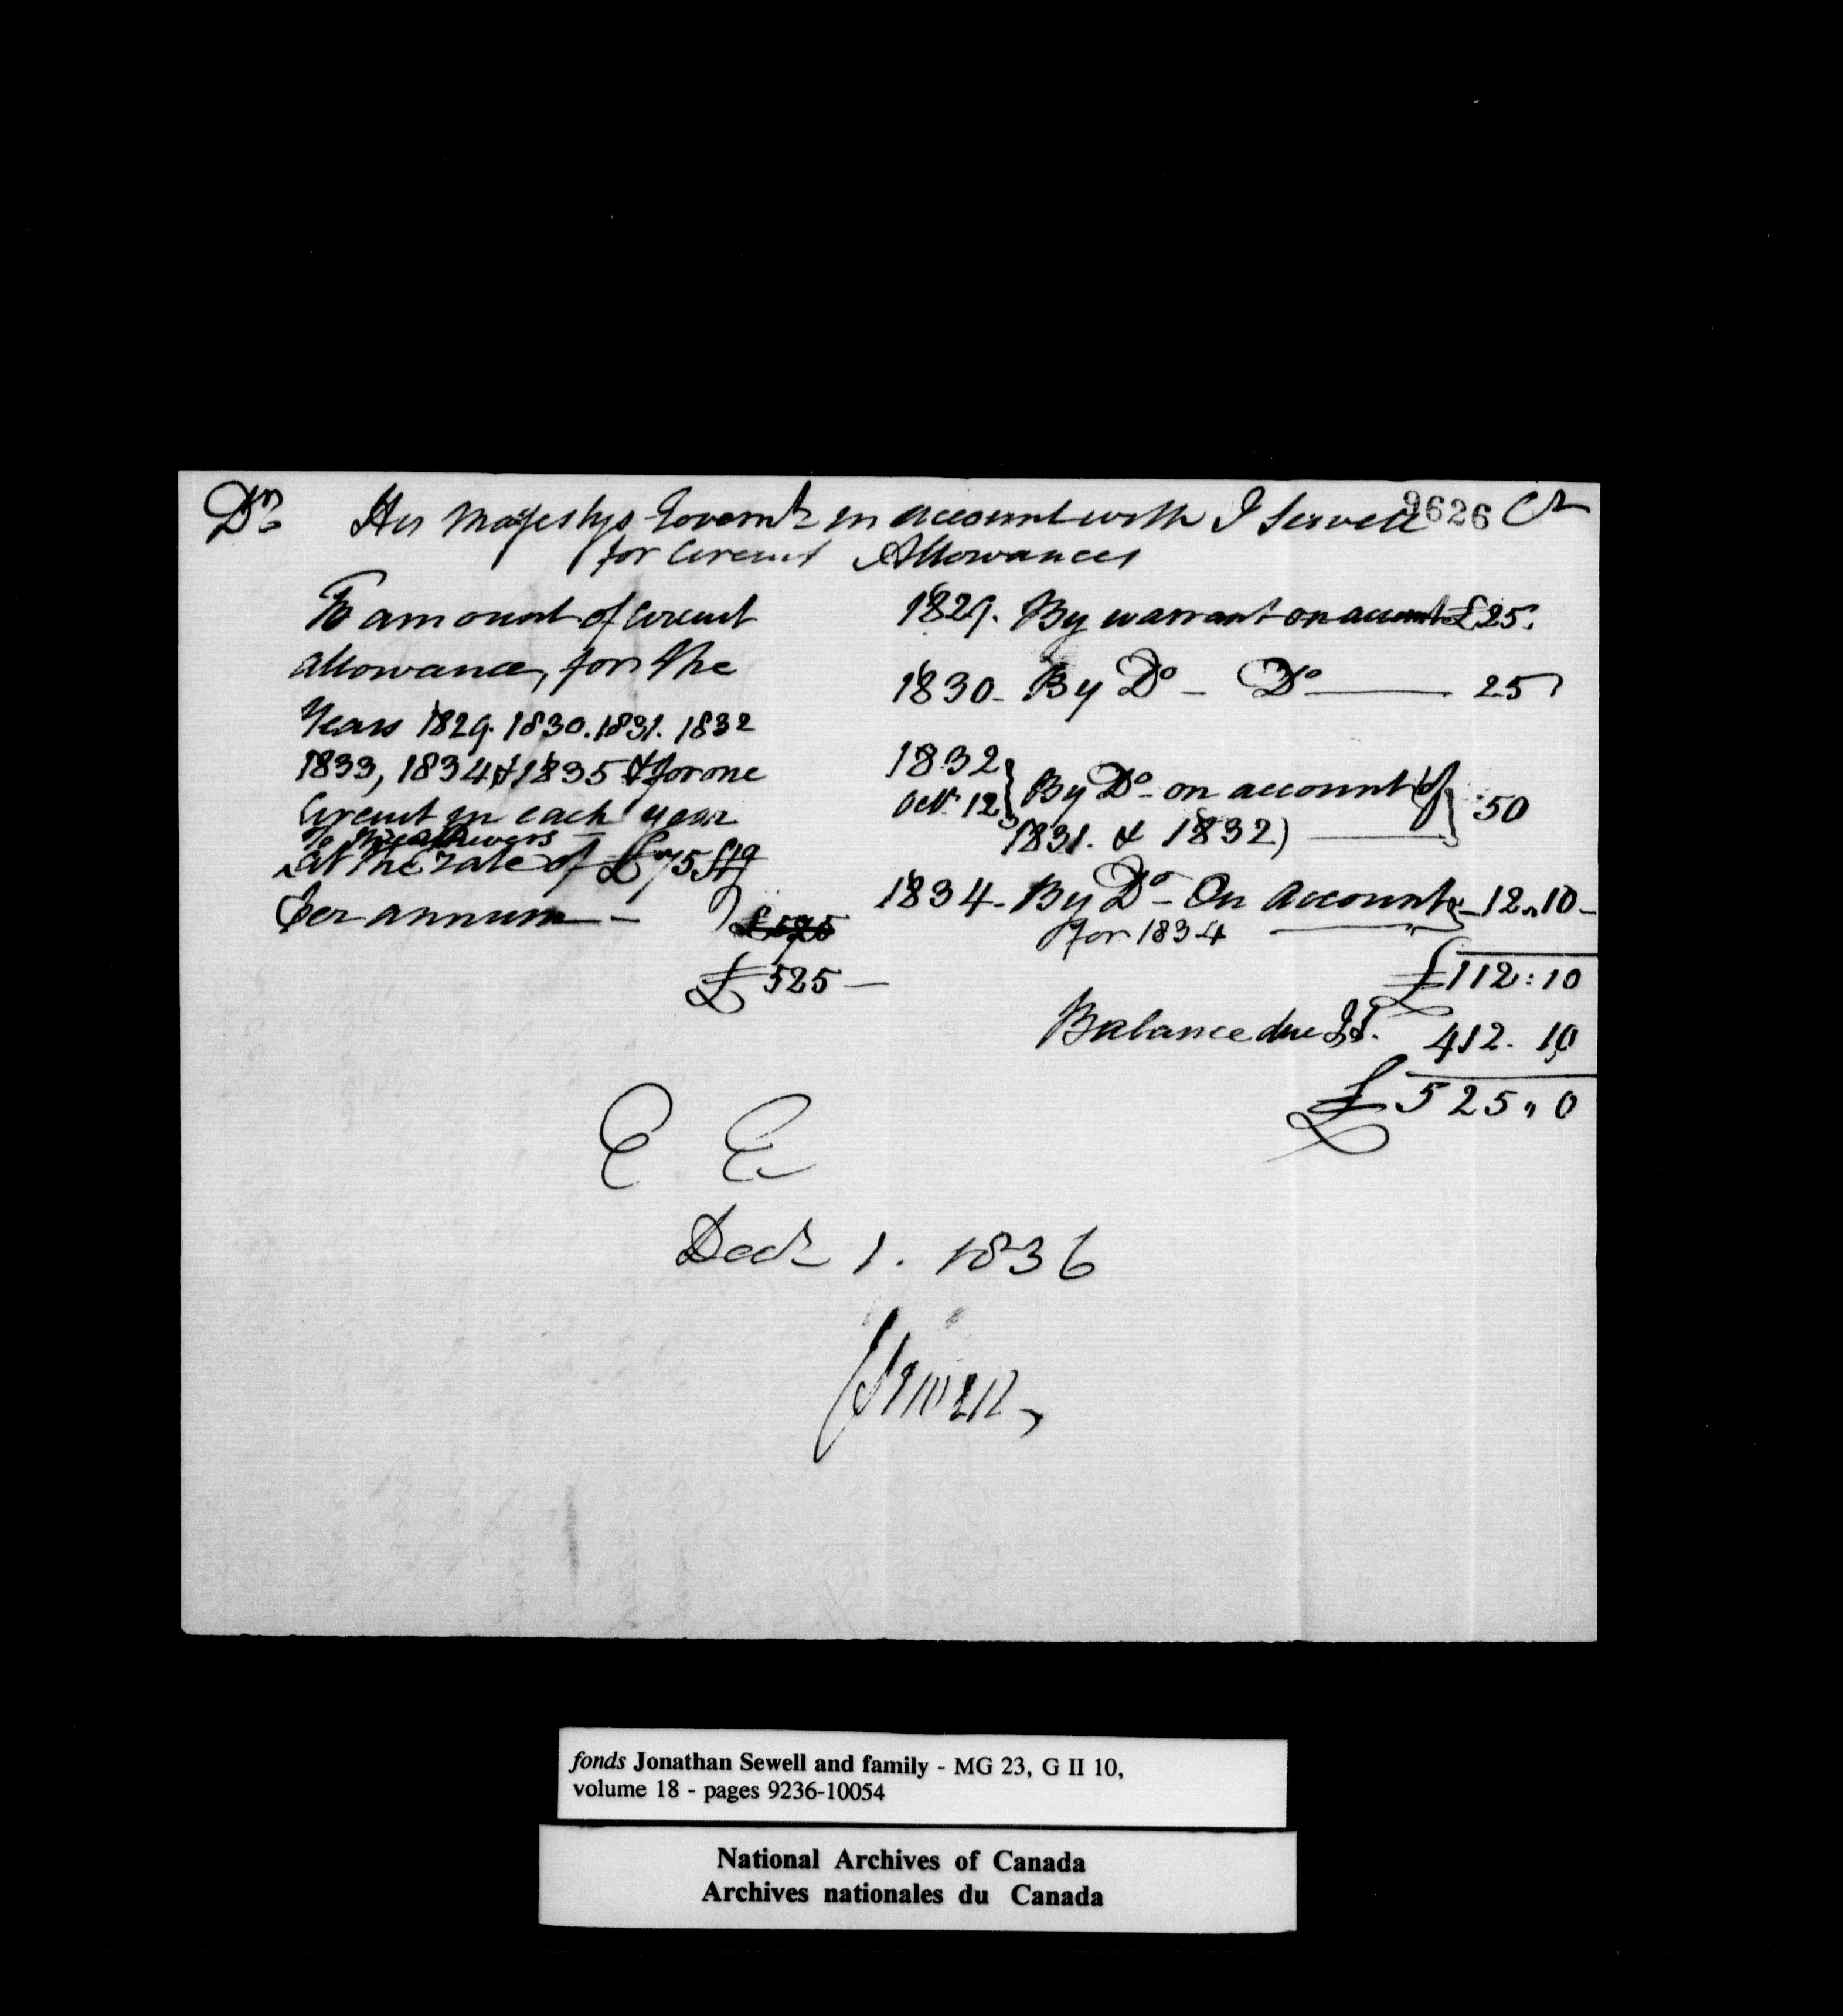 Dr. Her Majestys Governt in account with J Sewell 9626 Cr
for Circuit Allowances
To amount of Circuit
allowance, for the
Years 1829. 1830. 1831. 1832
1833, 1834, & 1835 & for one
Circuit in each year
to Three Rivers
at the rate of £75 Stg
per annum —
£525
£525 —
1829. By warrant on account £25.
1830. By Do - Do — 25
1832
Octr 12 } By Do - on account of } 50
1831. & 1832)
1834. By Do - On Account 12,,10 -
for 1834
£112:10
Balance due J S. 412. 10
£525,,0
E E
Decr 1. 1836
J Sewell
fonds Jonathan Sewell and family - MG 23, G II 10,
volume 18 - pages 9236-10054
National Archives of Canada
Archives nationales du Canada